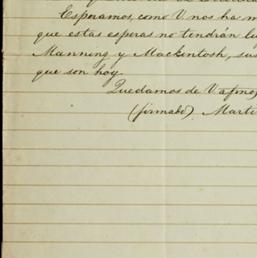 Esperamos, como V. nos ha m
que estas esperas no tendrán lu
Manning y Mackintosh, sus
que son hoy.
Quedamos de V. afmo
(firmado) Marti